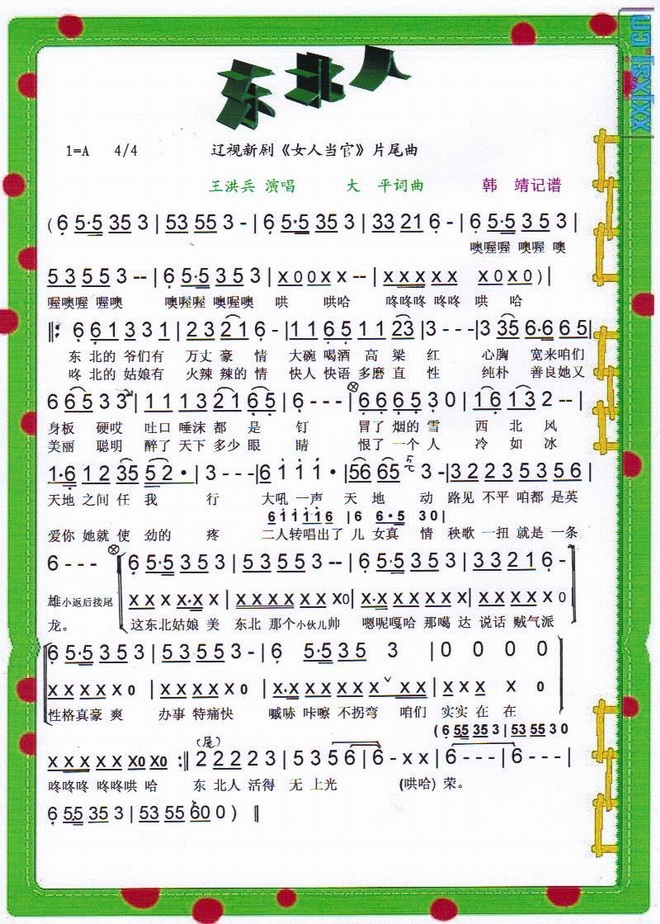 xxjxsj.cn
东北人
1=A 4/4 辽视新剧《女人当官》片尾曲
王洪兵 演唱 大 平词曲 韩 靖记谱
(6 5·5 35 3 | 53 55 3 - | 6 5·5 35 3 | 33 21 6 - | 6 5·5 35 3 |
噢喔喔 噢喔 噢
5 3 5 5 3 -- | 6 5·5 35 3 | X 0 0 X X -- | X X X X X X 0 X 0 ) |
喔噢喔 喔噢 噢喔喔 噢喔噢 哄 哄哈 咚咚咚 咚咚 哄 哈
𝄆 6 6 1 3 3 1 | 2 3 2 1 6 - | 1 1 6 5 1 1 2 3 | 3 - - - | 3 35 6·6 6 5 |
东 北的 爷们有 万丈 豪 情 大碗 喝酒 高 梁 红 心胸 宽来咱们
咚 北的 姑娘有 火辣 辣的 情 快人 快语 多磨 直 性 纯朴 善良她又
6 6 5 3 3 | 1 1 2 1 6 5 | 6 - - - | 6 6 6 5 3 0 | 1 6 1 3 2 -- |
身板 硬哎 吐口 唾沫 都 是 钉 冒了 烟的 雪 西 北 风
美丽 聪明 醉了 天下 多少 眼 睛 恨了 一个 人 冷 如 冰
1·6 1 2 35 5 2 · | 3 - - - | 6 1 1 1 · | 56 65 3 - | 3 2 2 3 5 3 5 6 |
天地 之间 任 我 行 大吼 一声 天 地 动 路见 不平 咱都 是英
6 1 1 1 1 6 | 6 6·5 3 0 |
爱你 她就 使 劲的 疼 二人转唱出了 儿 女真 情 秧歌 一扭 就是 一条
6 - - - 6 5·5 35 3 | 5 3 5 5 3 -- | 6 5·5 3 5 3 | 3 3 2 1 6 -
雄小返后接尾 X X X X·X X | X X X X X X X 0 | X·X X X X X X | X X X X X X 0
龙。 这东北姑娘 美 东北 那个小伙儿帅 嗯呢嘎哈 那喝 达 说话 贼气派
6 5·5 35 3 | 5 3 5 5 3 - | 6 5·5 3 5 3 | 0 0 0 0
X X X X X 0 | X X X X X 0 | X·X X X X X X X X | X X X X X
性格真豪 爽 办事 特痛快 喊哧 咔嚓 不拐弯 咱们 实实 在 在
(6 55 35 3 | 53 55 3 0
X X X X X X0 X0 :‖ (尾) 2 2 2 2 3 | 5 3 5 6 | 6 - X X | 6 - - - | 6 - - - |
咚咚咚 咚咚哄 哈 东 北人 活得 无 上光 (哄哈) 荣。
6 55 35 3 | 53 55 60 0 ) ‖